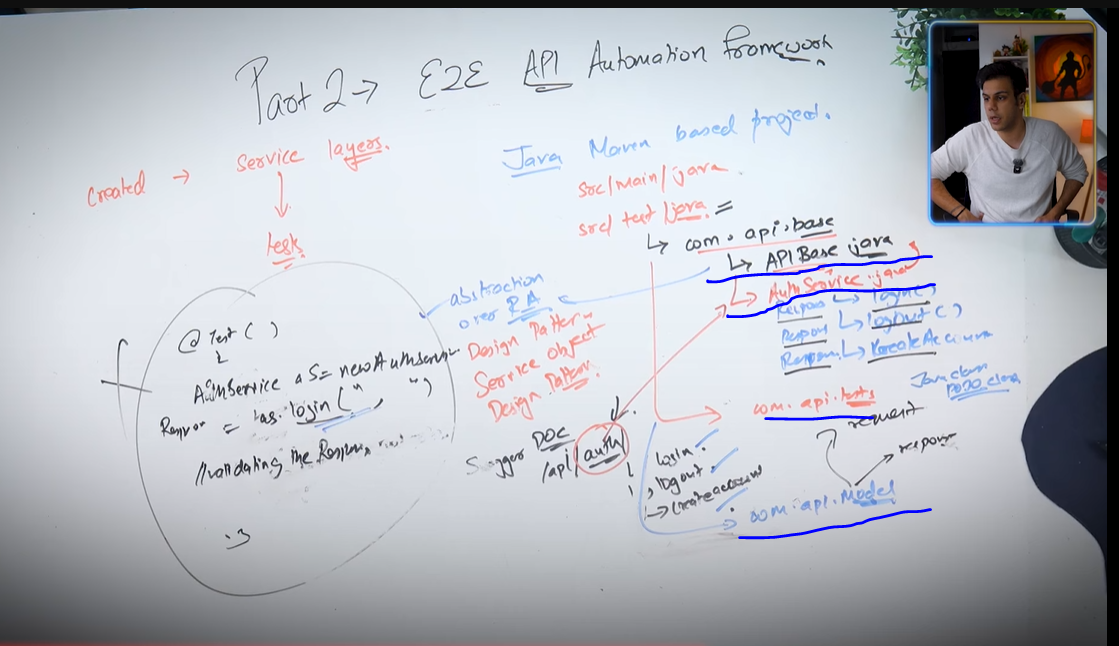 Part 2 → E2E API Automation Framework
Created → Service layers.
↓
tests
Java Maven based project.
src/main/java
src/test/java
↳ com.api.base
↳ API Base java
↳ AuthService.java
Respons ↳ login()
Respons ↳ logout()
↳
abstraction
over RA
Design Pattern
Service Object
Design Pattern.
@Test()
{
AuthService aS = new AuthService
= as.login(" , ")
//validating the
}
DOC
/api/auth/
login.
, logout.
→ createaccount
com.api.tests
Java class
POJO class
request
respons
com.api.Model